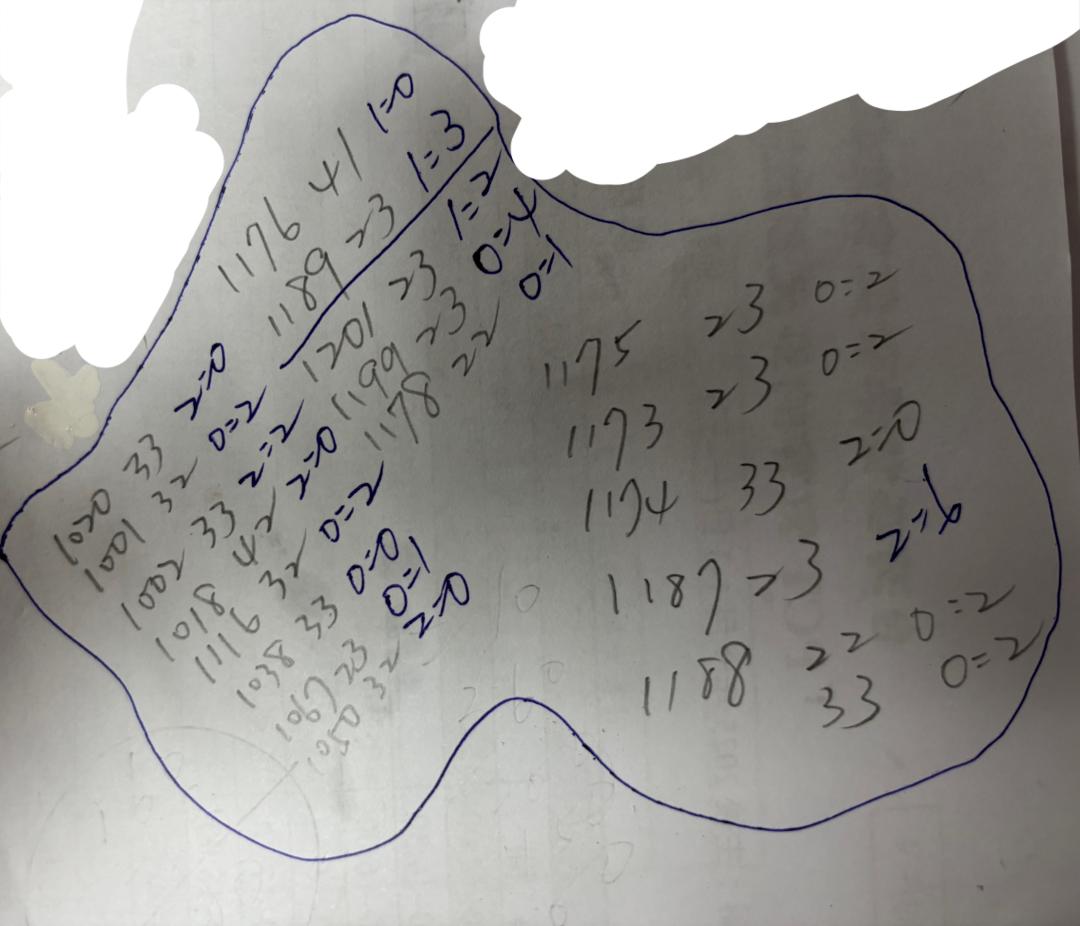 1176 41 1=0
1189 23 1=3
1201 23 1=2
1199 23 0=4
1178 22 0=1
1020 33 2=0
1001 32 0=2
1002 33 2=2
1018 42 2=0
1116 32 0=2
1038 33 0=0
1067 23 0=1
1050 32 2=0
1175 23 0=2
1173 23 0=2
1174 33 2=0
1187 23 2=6
1188 22 0=2
33 0=2